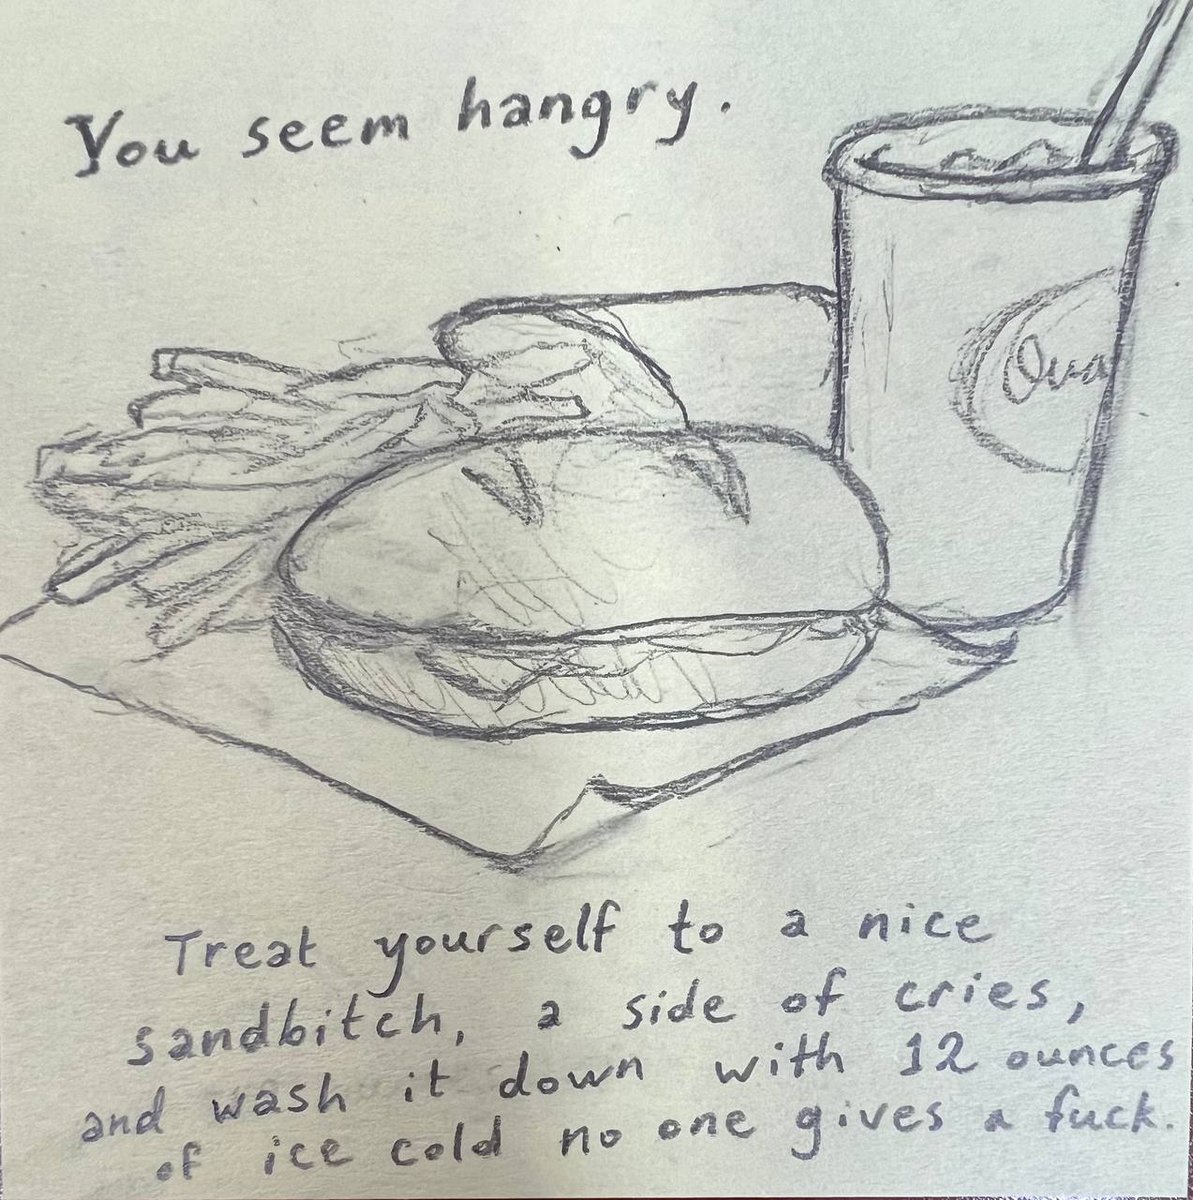 You seem hangry.
Qua
Treat yourself to a nice
sandbitch, a side of cries,
and wash it down with 12 ounces
of ice cold no one gives a fuck.